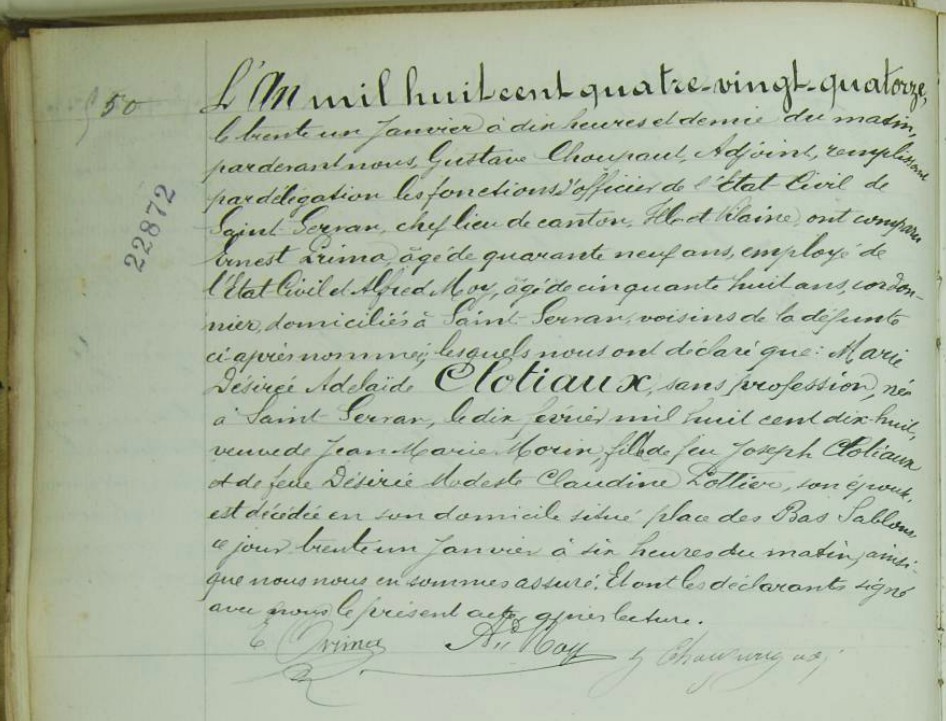 50
22872
L'An mil huit cent quatre-vingt-quatorze,
le trente un Janvier à dix heures et demie du matin,
pardevant nous, Gustave Choupaut, Adjoint, remplissant
par délégation les fonctions d'officier de l'Etat Civil de
Saint-Servan, chef lieu de canton, Ille et Vilaine, ont comparu
Ernest Prima, âgé de quarante neuf ans, employé de
l'Etat Civil et Alfred Moy, âgé de cinquante huit ans, cordon-
nier, domiciliés à Saint-Servan, voisins de la défunte
ci-après nommée; lesquels nous ont déclaré que: Marie
Désirée Adelaïde Clotiaux, sans profession, née
à Saint-Servan, le dix février mil huit cent dix-huit,
veuve de Jean Marie Morin, fille de feu Joseph Clotiaux
et de feue Désirée Modeste Claudine Lottier, son épouse,
est décédée en son domicile situé place des Bas Sablons
ce jour trente un Janvier à six heures du matin, ainsi
que nous nous en sommes assuré. Et ont les déclarants signé
avec nous le présent acte, après lecture.
E Prima Ad Moy